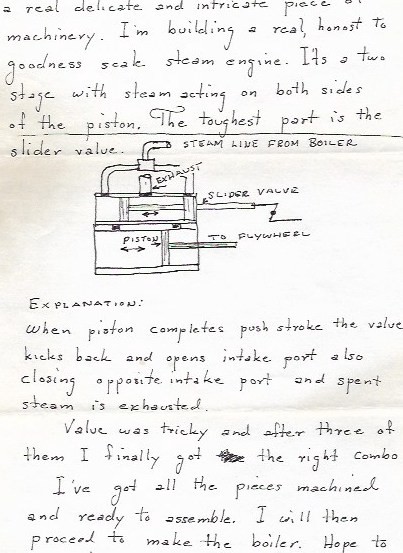 a real delicate and intricate piece of
machinery. I'm building a real, honost to
goodness scale steam engine. Its a two
stage with steam acting on both sides
of the piston. The toughest part is the
slider valve.
STEAM LINE FROM BOILER
EXHAUST
SLIDER VALVE
PISTON
TO FLYWHEEL
EXPLANATION:
When piston completes push stroke the valve
kicks back and opens intake port also
closing opposite intake port and spent
steam is exhausted.
Valve was tricky and after three of
them I finally got the right combo
I've got all the pieces machined
and ready to assemble. I will then
proceed to make the boiler. Hope to